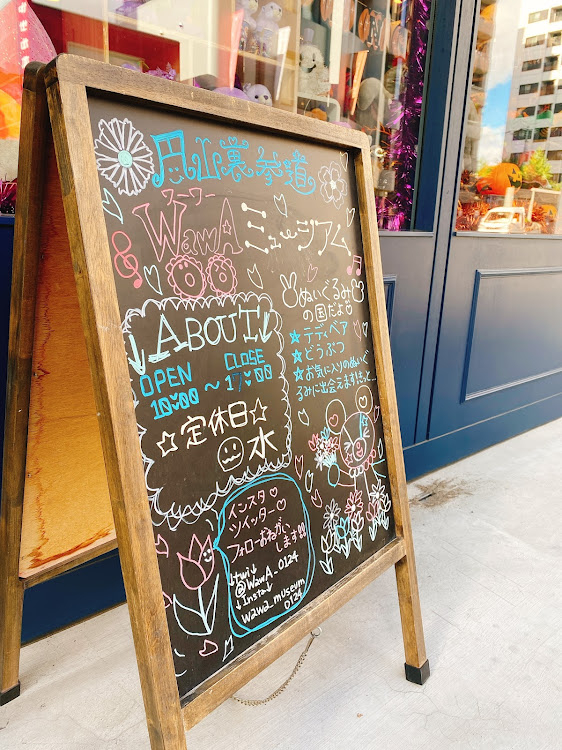 円山裏参道
ワーワー
WAWA ミュージアム
ABOUT
OPEN CLOSE
10:00 〜 17:00
☆定休日☆
水
ぬいぐるみ
の国だよ
★テディベア
★どうぶつ
★お気に入りのぬいぐ
るみに出会えます!きっと…
インスタ♡
ツイッター♡
フォローおねがい
します!!
↓twi↓
@WAWA_0124
↓Insta↓
wawa_museum
0124